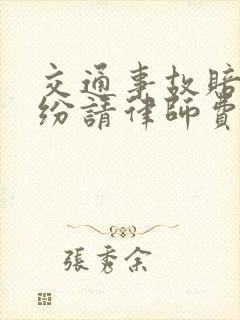 交通事故賠
紛請律師費
張秀余